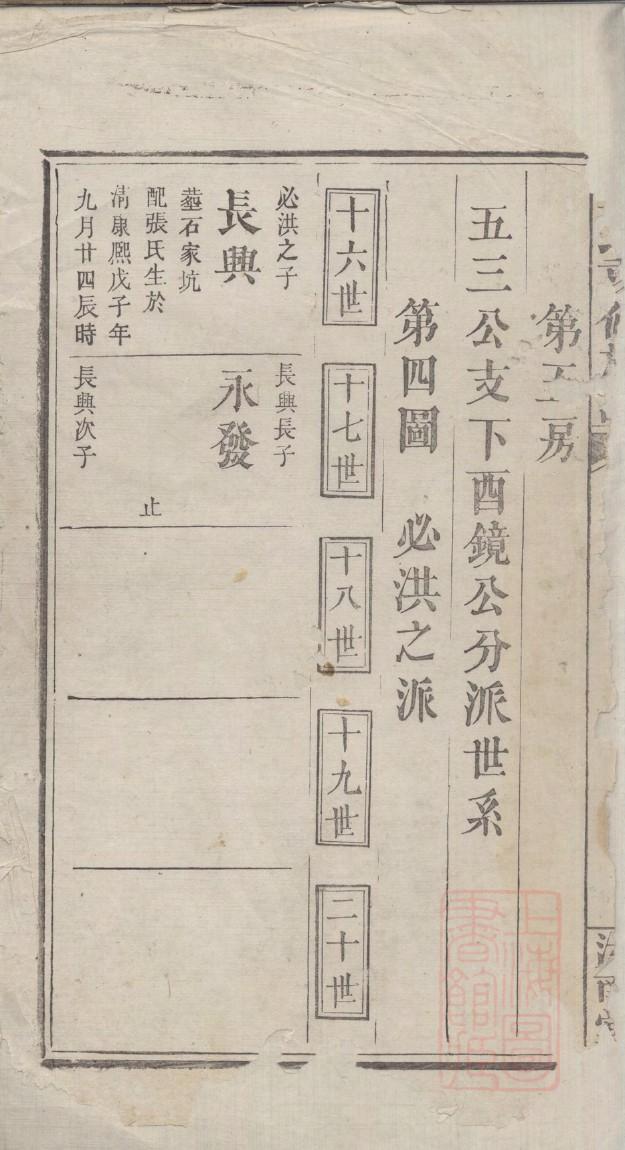 第五房
五三公支下酉鏡公分派世系
第四圖 必洪之派
十六世
十七世
十八世
十九世
二十世
必洪之子
長興
塟石家坑
配張氏生於
清康熙戊子年
九月廿四辰時
長興長子
永發
止
長興次子
上海圖書館藏